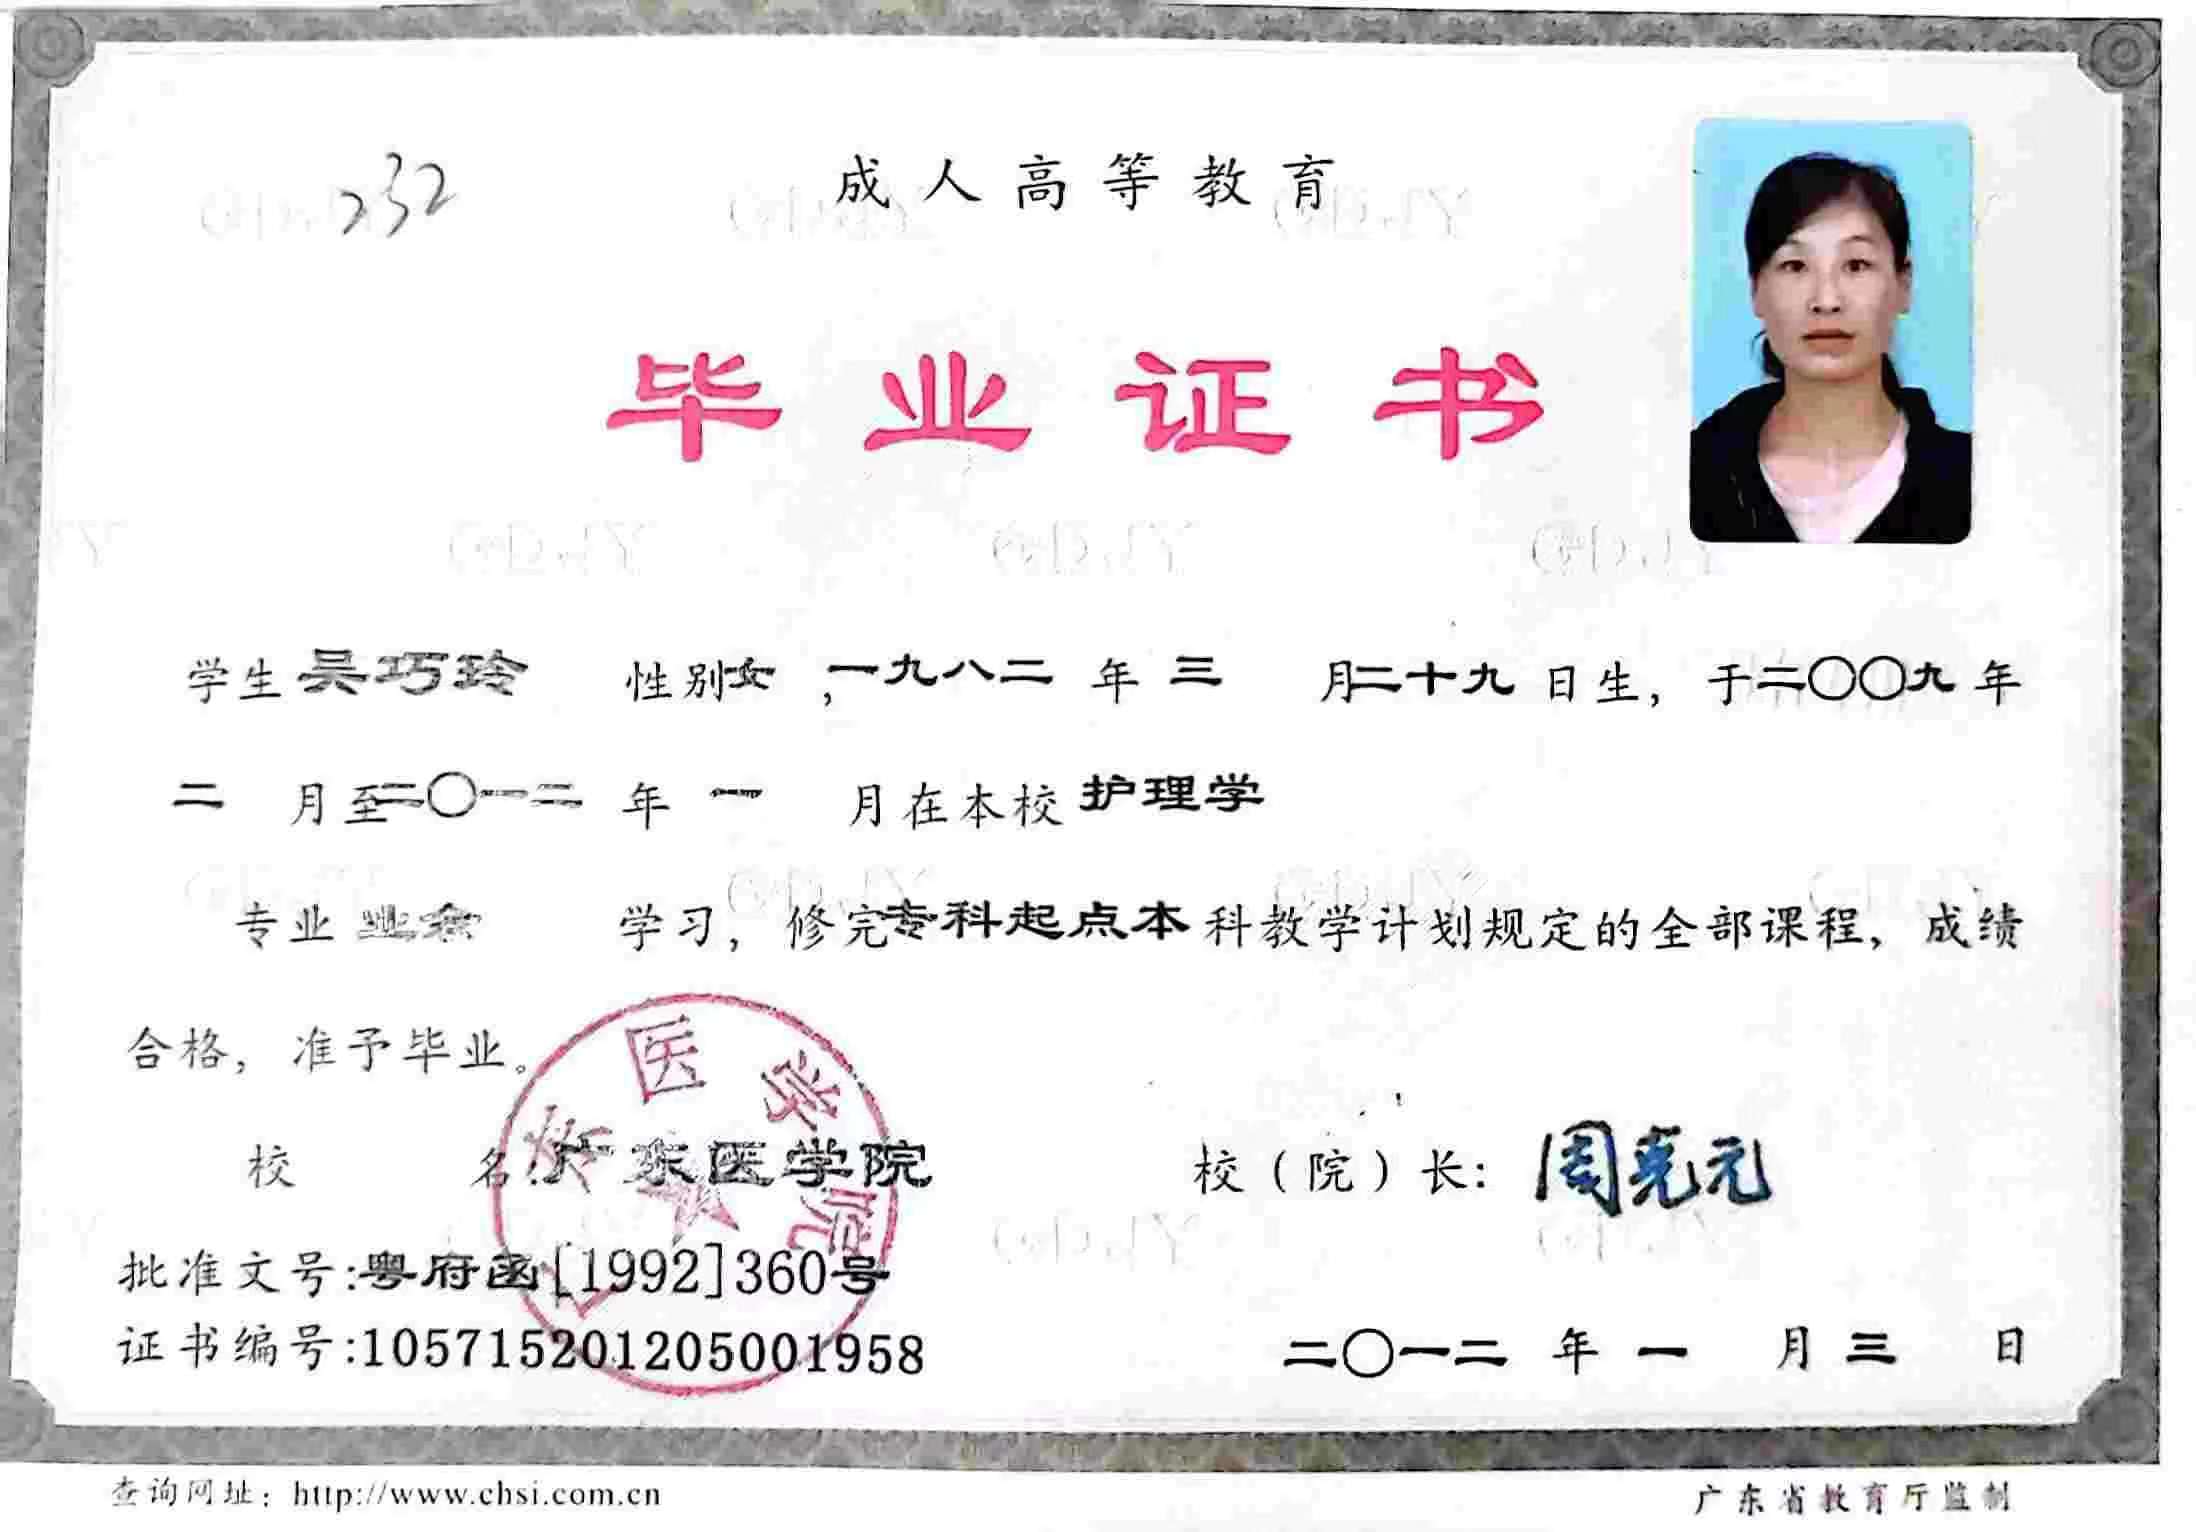 232
成人高等教育
毕业证书
学生 吴巧玲 性别 女 ，一九八二 年 三 月 二十九 日生，于二〇〇九 年
二 月至二〇一二 年 一 月在本校 护理学
专业 业余 学习，修完专科起点本科教学计划规定的全部课程，成绩
合格，准予毕业。
广东医学院
校 名：广东医学院 校（院）长：周克元
批准文号：粤府函[1992]360号
证书编号：105715201205001958 二〇一二 年 一 月 三 日
查询网址：http://www.chsi.com.cn 广东省教育厅监制